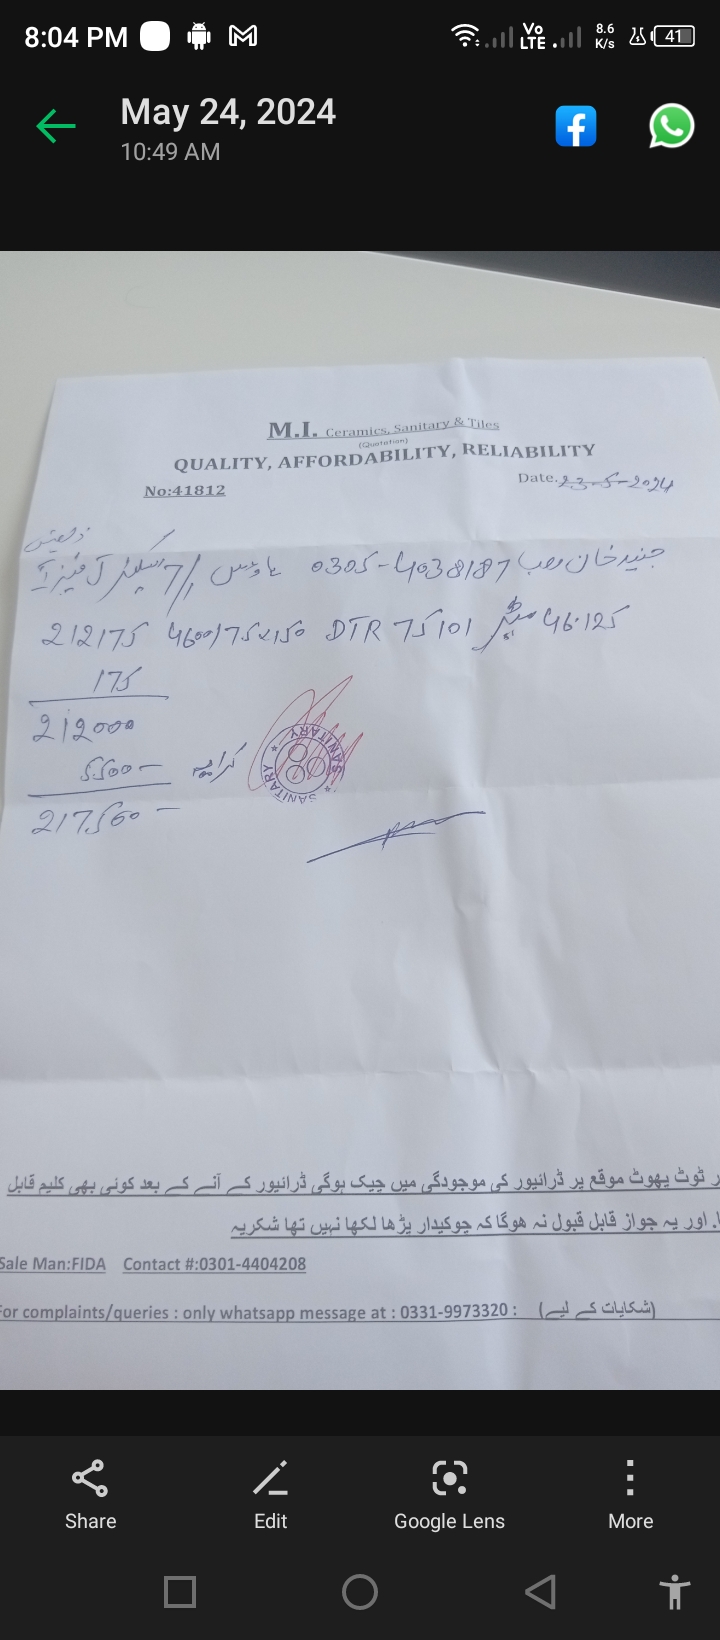 8:04 PM
Vo LTE
8.6 K/s
41
May 24, 2024
10:49 AM
M.I. Ceramics, Sanitary & Tiles
(Quotation)
QUALITY, AFFORDABILITY, RELIABILITY
No:41812
Date. 23-5-2024
جنید خان صب 0305-4038187 ہاوس
46.125 میٹر DTR 75101 75x150 / 4600 212175
175
212000
کرایہ 5500
217500
SANITARY SANITARY SANITARY
ر ٹوٹ پھوٹ موقع پر ڈرائیور کی موجودگی میں چیک ہوگی ڈرائیور کے آنے کے بعد کوئی بھی کلیم قابل
ا. اور یہ جواز قابل قبول نہ ھوگا کہ چوکیدار پڑھا لکھا نہیں تھا شکریہ
Sale Man:FIDA Contact #:0301-4404208
For complaints/queries : only whatsapp message at : 0331-9973320 : (شکایات کے لیے)
Share
Edit
Google Lens
More